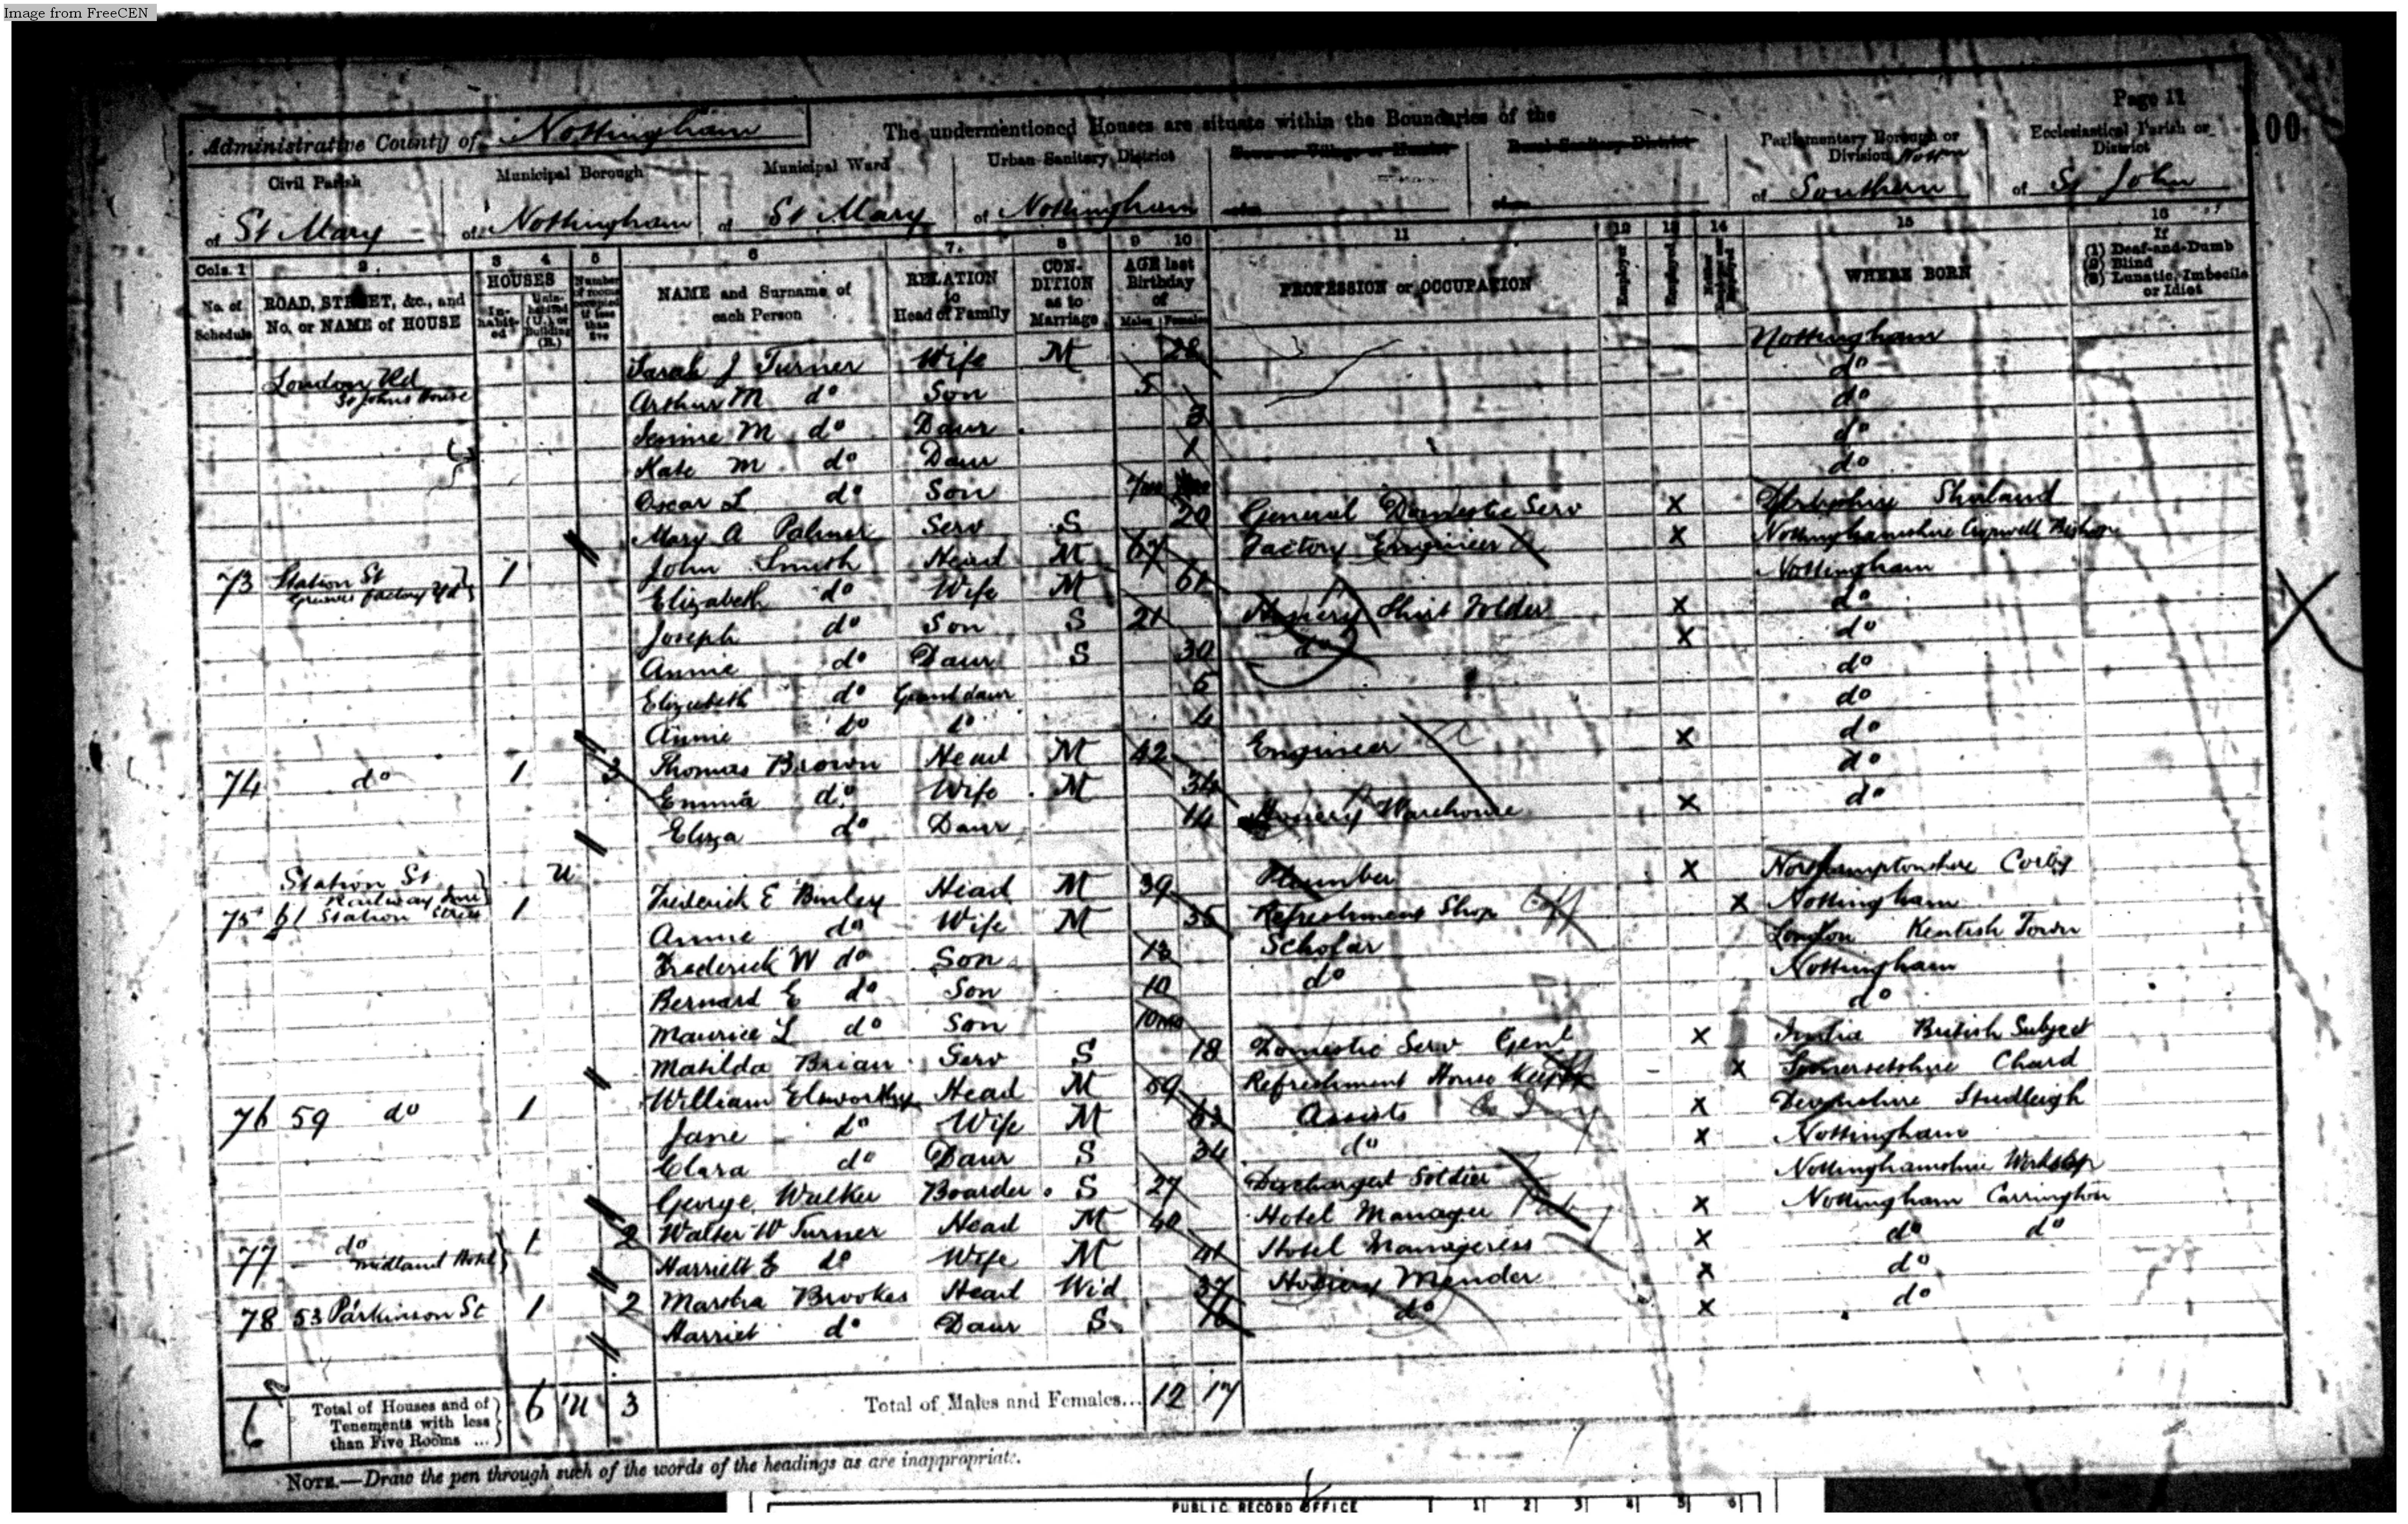 Image from FreeCEN
Page 11
Administrative County of Nottingham
The undermentioned Houses are situate within the Boundaries of the
100
Civil Parish of St Mary
Municipal Borough of Nottingham
Municipal Ward of St Mary
Urban Sanitary District of Nottingham
Town or Village or Hamlet of
Rural Sanitary District of
Parliamentary Borough or Division of Southern
Ecclesiastical Parish or District of St John
Cols. 1 2 3 4 5 6 7 8 9 10 11 12 13 14 15 16
No. of Schedule
ROAD, STREET, &c., and No. or NAME of HOUSE
HOUSES
Inhabited
Uninhabited (U.), or Building (B.)
Number of rooms occupied if less than five
NAME and Surname of each Person
RELATION to Head of Family
CONDITION as to Marriage
AGE last Birthday of
Males Females
PROFESSION or OCCUPATION
Employer
Employed
Neither Employer nor Employed
WHERE BORN
If (1) Deaf-and-Dumb (2) Blind (3) Lunatic, Imbecile or Idiot
London Rd St Johns House Sarah J Turner Wife M 28 Nottingham
Arthur M do Son 5 do
Jennie M do Daur 3 do
Kate M do Daur 1 do
Oscar L do Son 7mo do
Mary A Palmer Serv S 20 General Domestic Serv X Derbyshire Shirland
73 Station St Factory Yd 1 John Smith Head M 67 Factory Engineer X Nottinghamshire Cropwell Bishop
Elizabeth do Wife M 61 Nottingham
Joseph do Son S 21 Hosiery Shirt Folder X do
Annie do Daur S 30 do X do
Elizabeth do Grand daur 5 do
Annie do do 4 do
74 do 1 3 Thomas Brown Head M 42 Engineer X do
Emma do Wife M 34 do
Eliza do Daur 14 Hosiery Warehouse X do
Station St Railway U
75 61 Station Street 1 Frederick E Binley Head M 39 Plumber X Northamptonshire Corby
Annie do Wife M 35 Refreshment Shop X Nottingham
Frederick W do Son 13 Scholar London Kentish Town
Bernard E do Son 10 do Nottingham
Maurice L do Son 10mo do
Matilda Brian Serv S 18 Domestic Serv Genl X India British Subject
76 59 do 1 William Elsworthy Head M 59 Refreshment House Keeper X Somersetshire Chard
Jane do Wife M 62 Assists X Devonshire Studleigh
Clara do Daur S 34 do X Nottingham
George Walker Boarder S 27 Discharged Soldier Nottinghamshire Worksop
77 do Midland Hotel 1 2 Walter W Turner Head M 40 Hotel Manager X Nottingham Carrington
Harriett E do Wife M 41 Hotel Manageress X do do
78 53 Parkinson St 1 2 Martha Brookes Head Wid 37 Hosiery Mender X do
Harriet do Daur S 16 do X do
6 Total of Houses and of Tenements with less than Five Rooms ... 6 1U 3
Total of Males and Females... 12 17
NOTE.—Draw the pen through such of the words of the headings as are inappropriate.
PUBLIC RECORD OFFICE 1 2 3 4 5 6